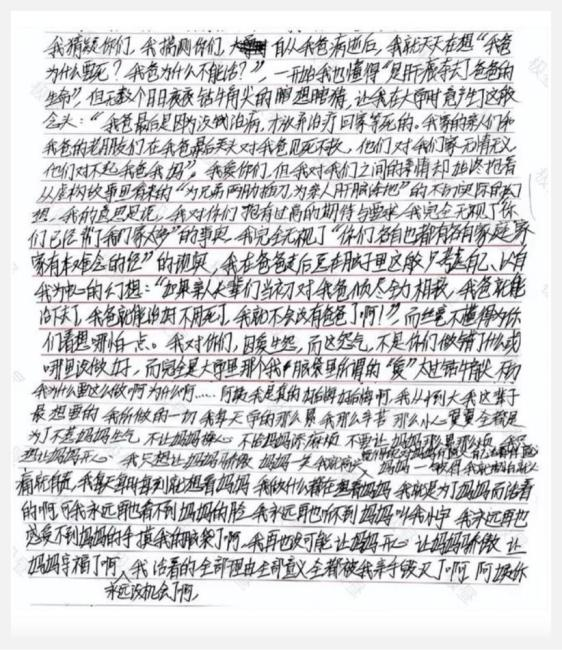 我猜疑你们,我揣测你们,自从我爸病逝后,我就天天在想“我爸
为什么要死?我爸为什么不能活?”,一开始我也懂得“是肝癌夺去了爸爸的
生命”,但无数个日日夜夜钻牛角尖的瞎想瞎猜,让我在大学时竟产生了这般
念头:“我爸最后是因为没钱治病,才放弃治疗回家等死的。我家的亲人们和
我爸的老朋友们在我爸最后关头对我爸见死不救,他们对我们家无情无义
他们对不起我爸我妈”。我爱你们,但我对我们之间的亲情却始终抱着
从虚构故事里看来的“为兄弟两肋插刀,为亲人肝脑涂地”的不切实际的幻
想,我的意思是说,我对你们抱有过高的期待与要求,我完全无视了“你
们已经帮了我们家太多”的事实,我完全无视了“你们各自也都有各自家庭,家
家有本难念的经”的现实,我在爸爸走后
我为中心的幻想:“如果亲人长辈们当初对我爸倾尽全力相救,我爸就能
治好了,我爸就能绝对不用死了,我就不会没有爸爸了啊!”而丝毫不懂得为你
们着想哪怕一点。我对你们,因爱生怨,而这怨气,不是你们做错了什么或
哪里没做好,而完全是大学里那个我脑袋里所谓的“爱”太过钻牛角尖
我为什么要这么做啊为什么啊……阿姨我是真的好后悔好后悔啊我从小到大我这辈子
最想要的 我所做的一切我每天学的那么累我那么辛苦 那么小心翼翼全都是
为了不惹妈妈生气 不让妈妈操心 不给妈妈添麻烦 不要让妈妈那么累那么烦 我只
想让妈妈开心 我只想让妈妈骄傲 妈妈一笑我就 妈妈一
痛就自责,我每天每时每刻就想着妈妈 我做什么都在想着妈妈 我就是为了妈妈而活着
的啊可我永远再也看不到妈妈的脸 我永远再也听不到妈妈叫我小宇 我永远再也
感受不到妈妈的手摸我的脑袋了啊,我再也没可能让妈妈开心 让妈妈骄傲 让
妈妈享福了啊,我活着的全部理由全部意义全都被我亲手毁灭了啊,阿姨你
永远没机会了啊,